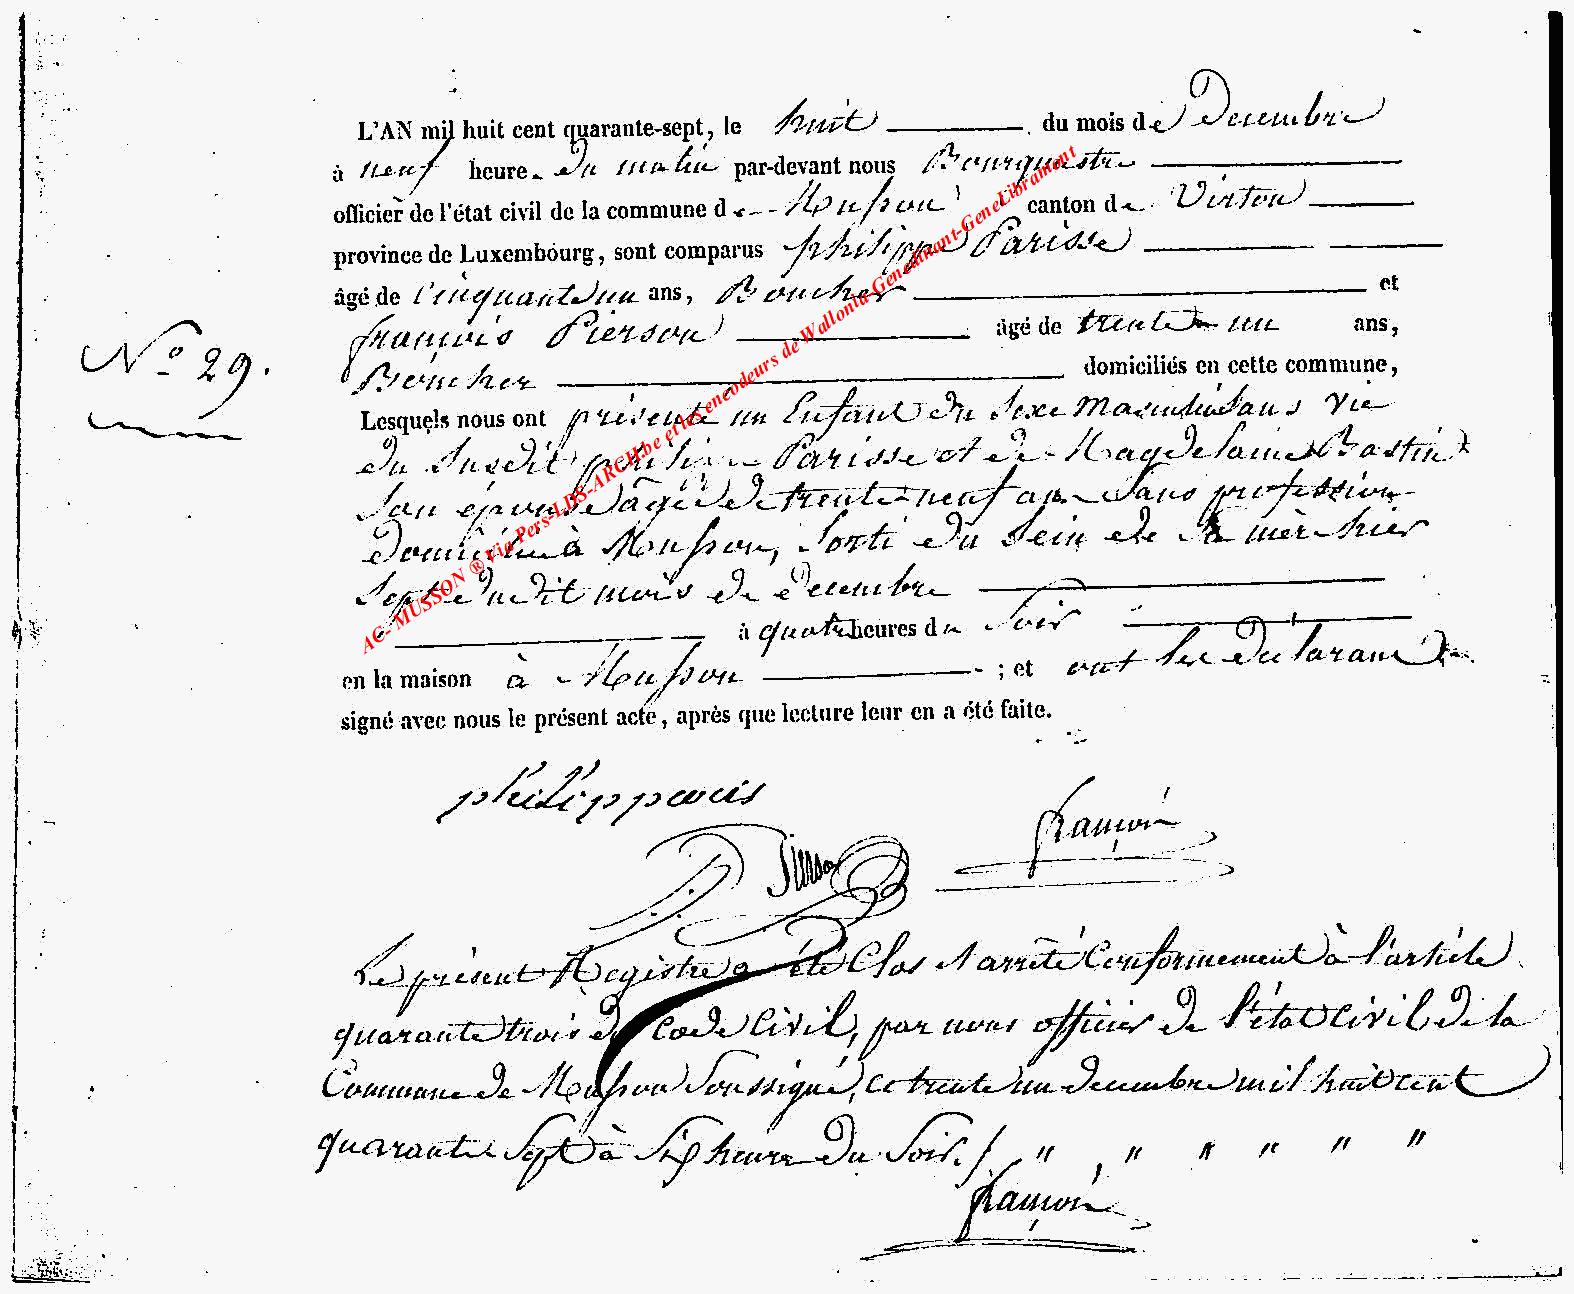 L'AN mil huit cent quarante-sept, le huit du mois de Decembre
à neuf heure du matin par-devant nous Bourguestre
officier de l'état civil de la commune de Musson canton de Virton
province de Luxembourg, sont comparus philippe Parisse
âgé de Cinquante un ans, Boucher et
françois Pierson âgé de trente un ans,
N.º 29.
Boucher domiciliés en cette commune,
Lesquels nous ont présenté un Enfant du Sexe Masculin Sans vie
du Susdit philippe Parisse et de Magdelaine Bastin
Son épouse âgée de trente neuf ans Sans profession
domiciliée à Musson, Sorti du Sein de Sa mère hier
Sept du dit mois de decembre
à quatre heures du Soir
en la maison à Musson ; et ont les déclarants
signé avec nous le présent acte, après que lecture leur en a été faite.
AC- MUSSON ® Via Pers-LDS-ARCH.be et les encodeurs de Wallonia-Genedinant-GeneLibramont
philippparis
françois
Pierson
Le présent Registre a été Clos et arrêté Conformement à l'article
quarante trois du Code Civil, par nous officier de l'état Civil de la
Commune de Musson Soussigné, ce trente un decembre mil huit cent
quarante Sept à Six heure du Soir./. " , " " " " "
françois